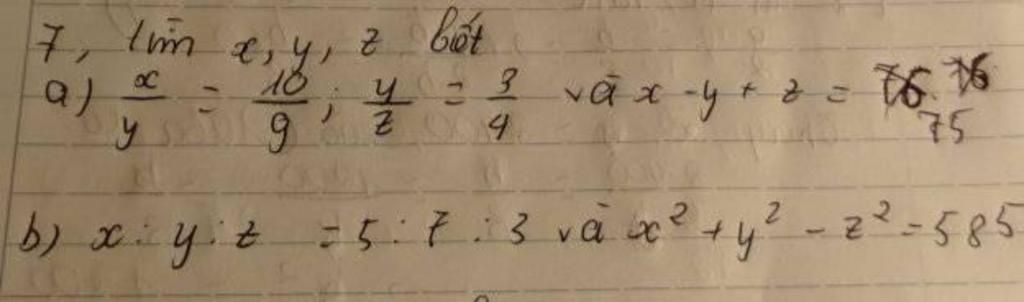 7, tìm x, y, z biết
a) x/y = 10/9 ; y/z = 3/4 và x - y + z = 75
b) x : y : z = 5 : 7 : 3 và x² + y² - z² = 585